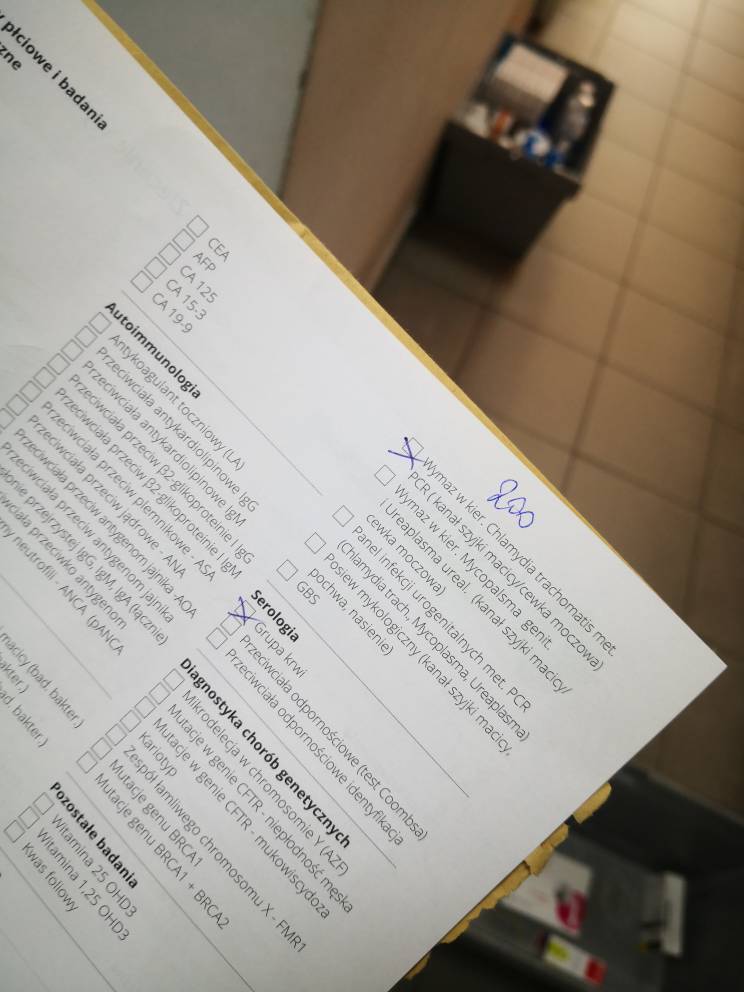 płciowe i badania
CEA
AFP
CA 125
CA 15-3
CA 19-9
Autoimmunologia
Antykoagulant toczniowy (LA)
Przeciwciała antykardiolipinowe IgG
Przeciwciała antykardiolipinowe IgM
Przeciwciała przeciw β2-glikoproteinie I IgG
Przeciwciała przeciw β2-glikoproteinie I IgM
Przeciwciała przeciw plemnikowe - ASA
Przeciwciała przeciw jądrowe - ANA
Przeciwciała przeciw antygenom jajnika -AOA
Przeciwciała przeciw antygenom jajnika
przejrzystej IgG, IgM, IgA (łącznie)
przeciwko antygenom
neutrofili - ANCA (pANCA
(bad. bakter.)
bakter.)
bad. bakter.)
Wymaz w kier. Chlamydia trachomatis met.
PCR ( kanał szyjki macicy/cewka moczowa)
200
Wymaz w kier. Mycopalsma genit.
i Ureaplasma ureal. (kanał szyjki macicy/
cewka moczowa)
Panel infekcji urogenitalnych met. PCR
(Chlamydia trach, Mycoplasma, Ureaplasma)
Posiew mykologiczny (kanał szyjki macicy,
pochwa, nasienie)
GBS
Serologia
Grupa krwi
Przeciwciała odpornościowe (test Coombsa)
Przeciwciała odpornościowe identyfikacja
Diagnostyka chorób genetycznych
Mikrodelecja w chromosomie Y (AZF)
Mutacje w genie CFTR - niepłodność męska
Mutacje w genie CFTR - mukowiscydoza
Kariotyp
Zespół łamliwego chromosomu X - FMR1
Mutacje genu BRCA1
Mutacje genu BRCA1 + BRCA2
Pozostałe badania
Witamina 25 OHD3
Witamina 1,25 OHD3
Kwas foliowy